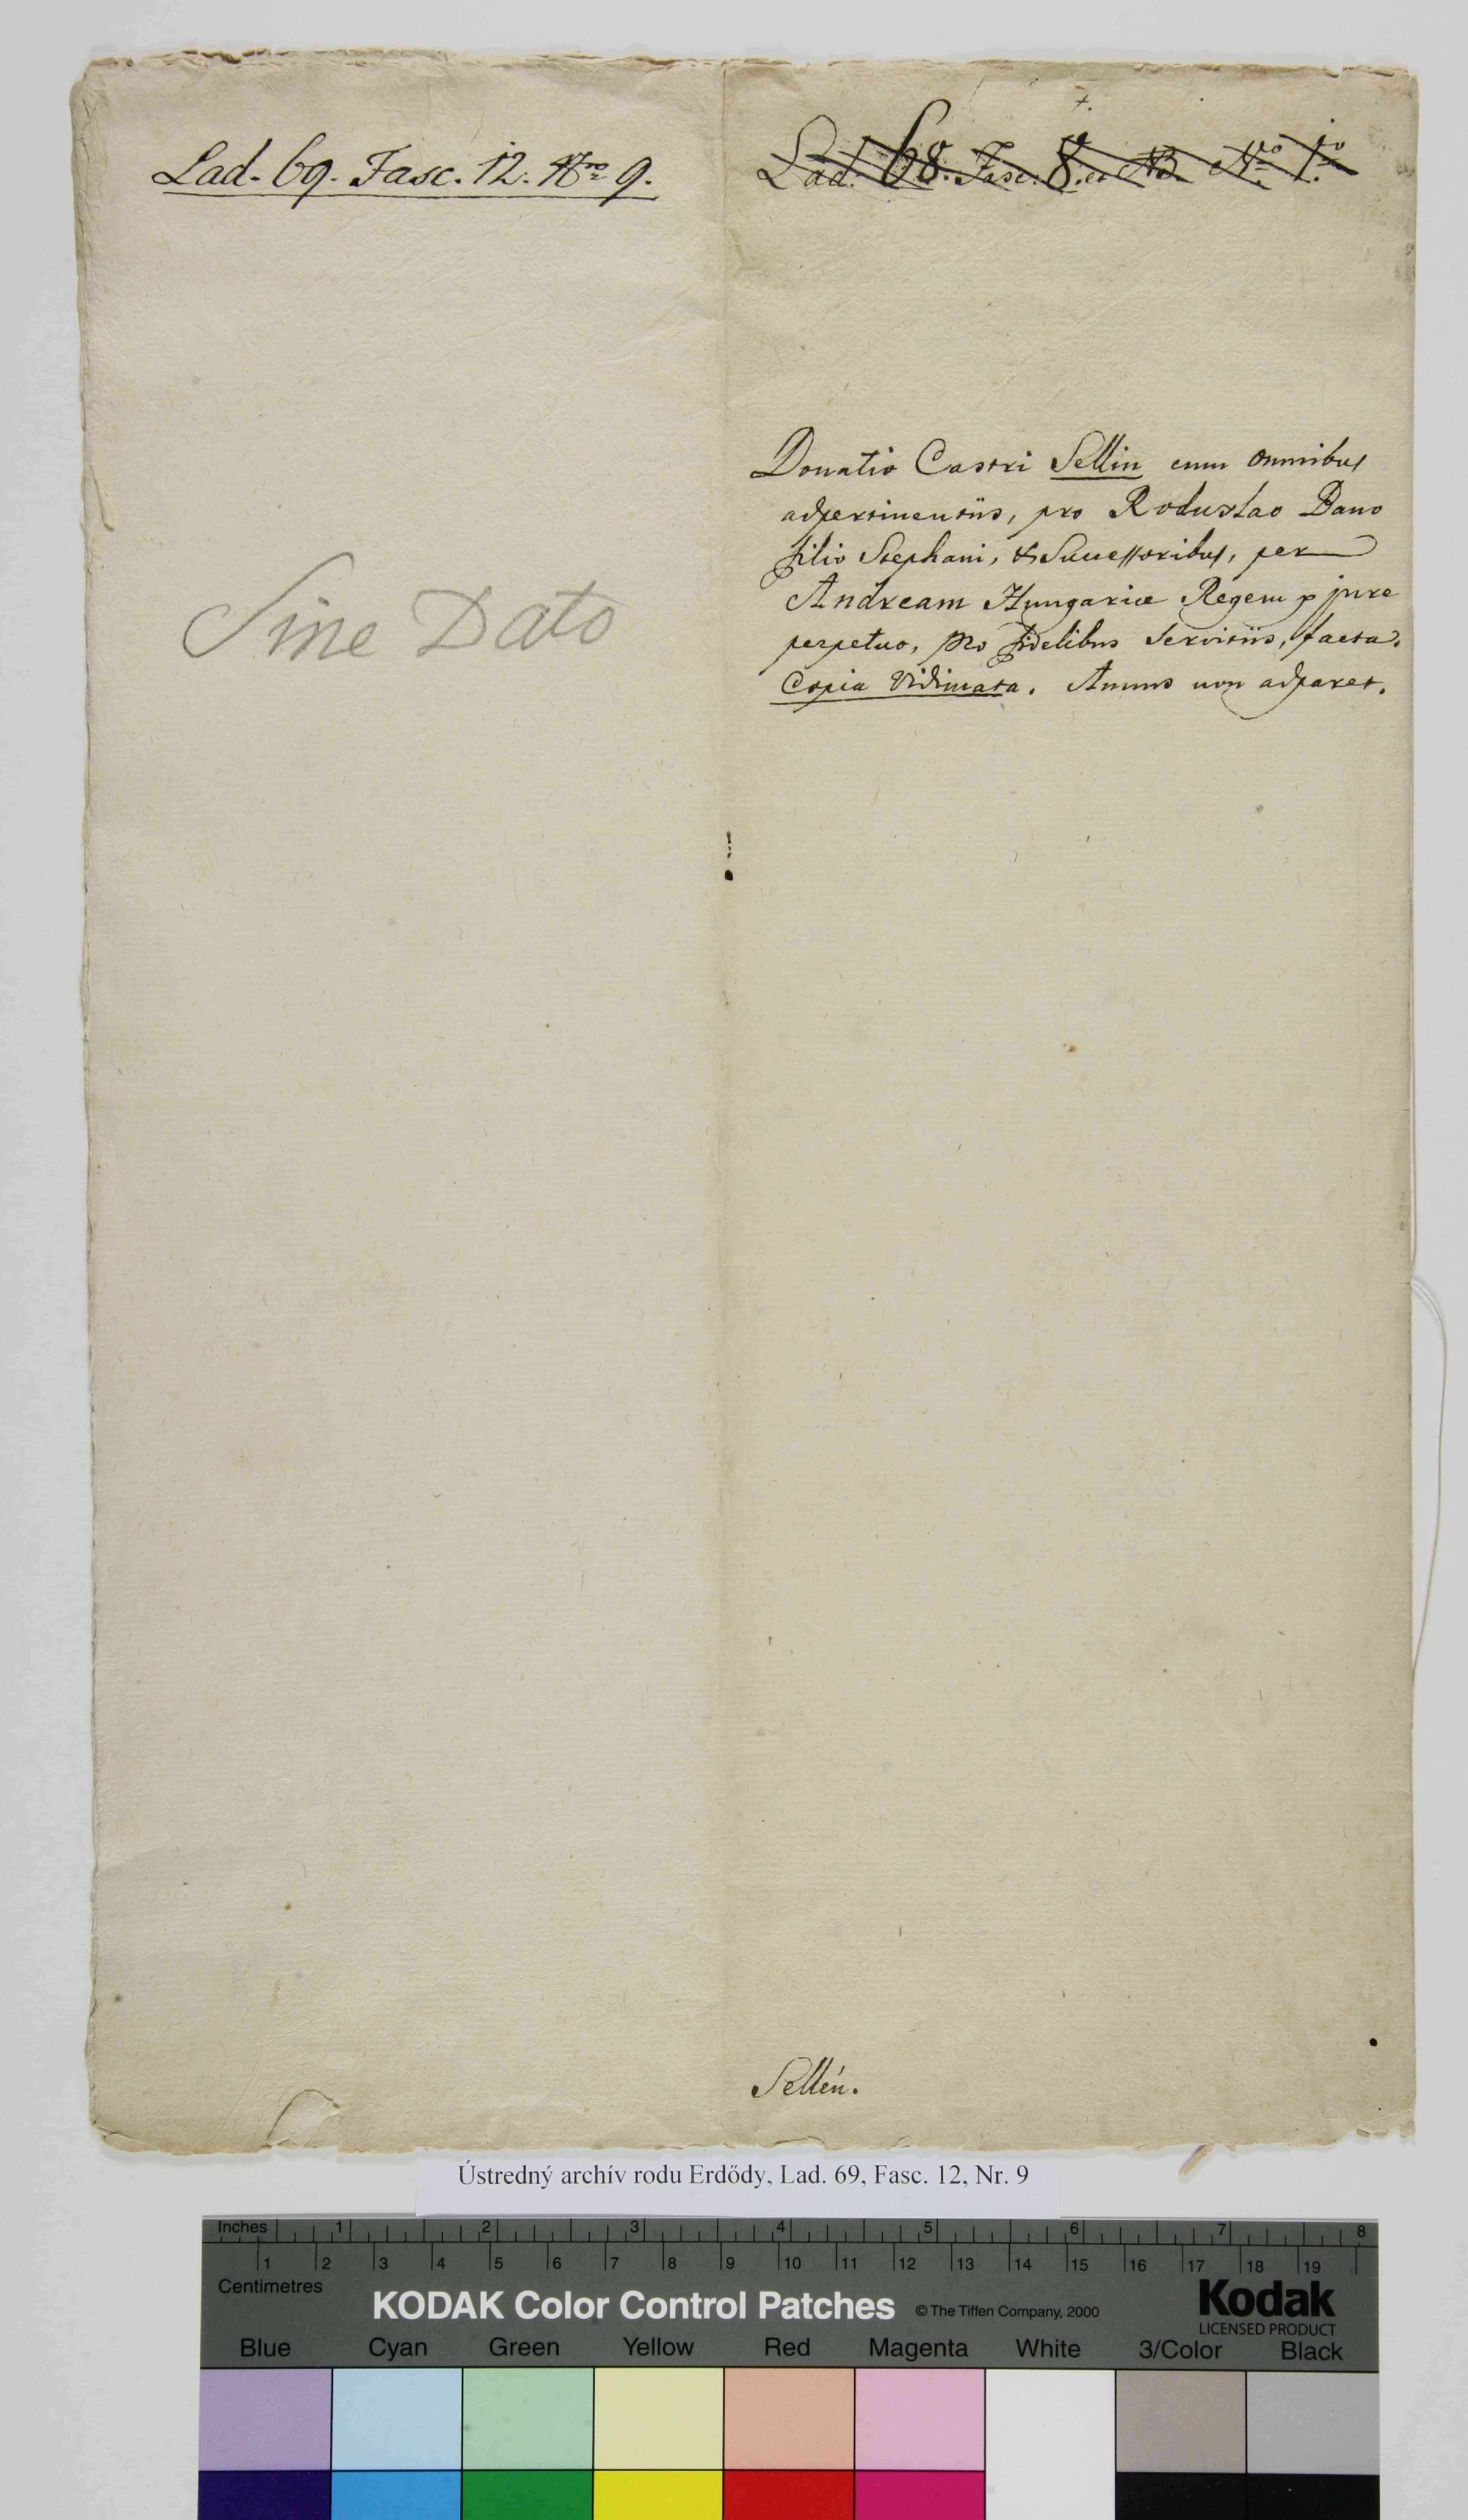 Lad. 69. Fasc. 12. Nro 9.
Sine Dato
Lad. 68. Fasc. 8. et No. 1o
Donatio Castri Sellin cum omnibus
adpertinentiis, pro Roduslao Bano
filio Stephani, & Successoribus, per
Andream Hungariæ Regem p jure
perpetuo, pro fidelibus Servitiis, facta.
Copia Vidimata. Annus non adparet.
Sellén.
Ústredný archív rodu Erdődy, Lad. 69, Fasc. 12, Nr. 9
Inches 1 2 3 4 5 6 7 8
1 2 3 4 5 6 7 8 9 10 11 12 13 14 15 16 17 18 19
Centimetres
KODAK Color Control Patches © The Tiffen Company, 2000 Kodak
LICENSED PRODUCT
Blue Cyan Green Yellow Red Magenta White 3/Color Black